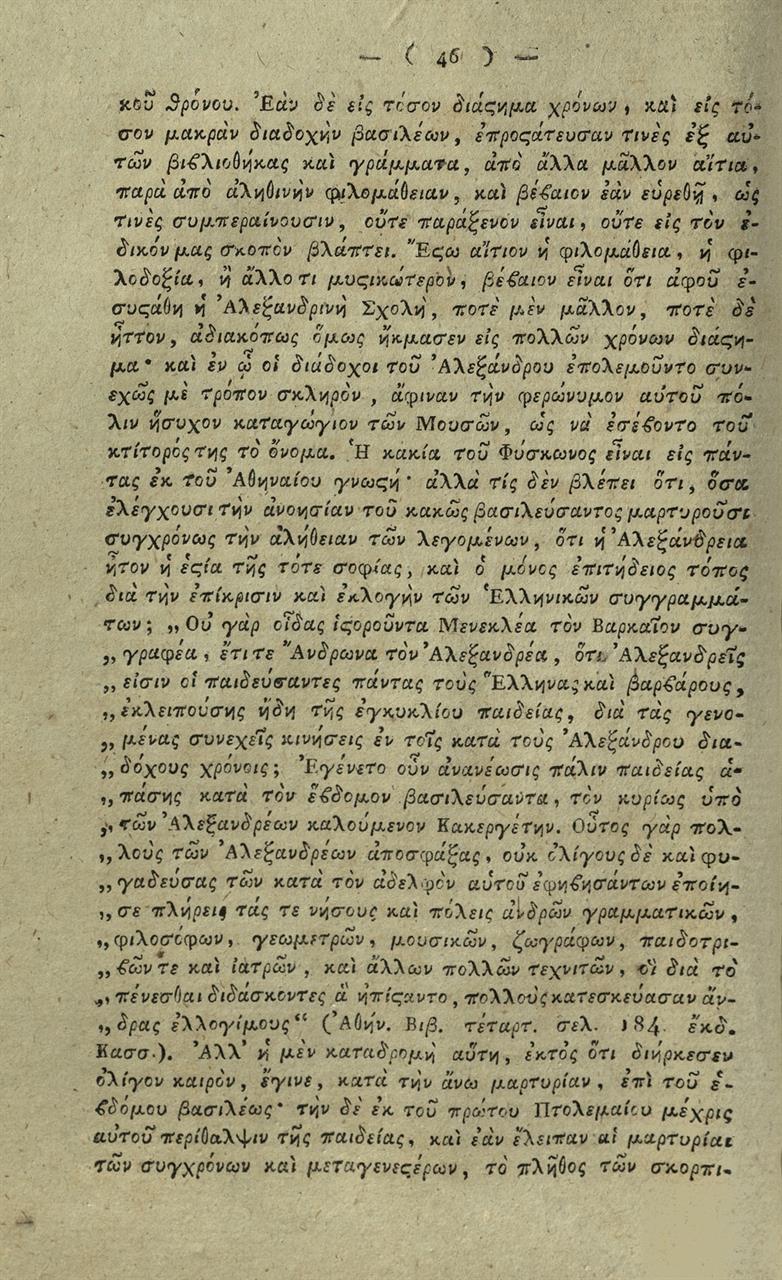 — ( 46 ) —
κοῦ θρόνου. Ἐὰν δὲ εἰς τόσον διάςημα χρόνων, καὶ εἰς τό-
σον μακρὰν διαδοχὴν βασιλέων, ἐπροςάτευσαν τινὲς ἐξ αὐ-
τῶν βιβλιοθήκας καὶ γράμματα, ἀπὸ ἄλλα μᾶλλον αἴτια,
παρὰ ἀπὸ ἀληθινὴν φιλομάθειαν, καὶ βέβαιον ἐὰν εὑρεθῇ, ὡς
τινὲς συμπεραίνουσιν, οὔτε παράξενον εἶναι, οὔτε εἰς τὸν ἐ-
δικόν μας σκοπὸν βλάπτει. Ἔςω αἴτιον ἡ φιλομάθεια, ἡ φι-
λοδοξία, ἢ ἄλλο τι μυςικώτερον, βέβαιον εἶναι ὅτι ἀφοῦ ἐ-
συςάθη ἡ Ἀλεξανδρινὴ Σχολὴ, ποτὲ μὲν μᾶλλον, ποτὲ δὲ
ἧττον, ἀδιακόπως ὅμως ἤκμασεν εἰς πολλῶν χρόνων διάςη-
μα· καὶ ἐν ᾧ οἱ διάδοχοι τοῦ Ἀλεξάνδρου ἐπολεμοῦντο συν-
εχῶς μὲ τρόπον σκληρὸν, ἄφιναν τὴν φερώνυμον αὐτοῦ πό-
λιν ἥσυχον καταγώγιον τῶν Μουσῶν, ὡς νὰ ἐσέβοντο τοῦ
κτίτορός της τὸ ὄνομα. Ἡ κακία τοῦ Φύσκωνος εἶναι εἰς πάν-
τας ἐκ τοῦ Ἀθηναίου γνωςή· ἀλλὰ τίς δὲν βλέπει ὅτι, ὅσα
ἐλέγχουσι τὴν ἀνοησίαν τοῦ κακῶς βασιλεύσαντος μαρτυροῦσι
συγχρόνως τὴν ἀλήθειαν τῶν λεγομένων, ὅτι ἡ Ἀλεξάνδρεια
ἦτον ἡ ἑςία τῆς τότε σοφίας, καὶ ὁ μόνος ἐπιτήδειος τόπος
διὰ τὴν ἐπίκρισιν καὶ ἐκλογὴν τῶν Ἑλληνικῶν συγγραμμά-
των; ,,Οὐ γὰρ οἶδας ἱςοροῦντα Μενεκλέα τὸν Βαρκαῖον συγ-
,,γραφέα, ἔτι τε Ἄνδρωνα τὸν Ἀλεξανδρέα, ὅτι Ἀλεξανδρεῖς
,,εἰσιν οἱ παιδεύσαντες πάντας τοὺς Ἕλληνας καὶ βαρβάρους,
,,ἐκλειπούσης ἤδη τῆς ἐγκυκλίου παιδείας, διὰ τὰς γενο-
,,μένας συνεχεῖς κινήσεις ἐν τοῖς κατὰ τοὺς Ἀλεξάνδρου δια-
,,δόχους χρόνοις; Ἐγένετο οὖν ἀνανέωσις πάλιν παιδείας ἁ-
,,πάσης κατὰ τὸν ἕβδομον βασιλεύσαντα, τὸν κυρίως ὑπὸ
,,τῶν Ἀλεξανδρέων καλούμενον Κακεργέτην. Οὗτος γὰρ πολ-
,,λοὺς τῶν Ἀλεξανδρέων ἀποσφάξας, οὐκ ὀλίγους δὲ καὶ φυ-
,,γαδεύσας τῶν κατὰ τὸν ἀδελφὸν αὑτοῦ ἐφηβησάντων ἐποίη-
,,σε πλήρεις τάς τε νήσους καὶ πόλεις ἀνδρῶν γραμματικῶν,
,,φιλοσόφων, γεωμετρῶν, μουσικῶν, ζωγράφων, παιδοτρι-
,,βῶν τε καὶ ἰατρῶν, καὶ ἄλλων πολλῶν τεχνιτῶν, οἳ διὰ τὸ
,,πένεσθαι διδάσκοντες ἃ ἠπίςαντο, πολλοὺς κατεσκεύασαν ἄν-
,,δρας ἐλλογίμους“ (Ἀθήν. Βιβ. τέταρτ. σελ. 184 ἔκδ.
Κασσ.). Ἀλλ' ἡ μὲν καταδρομὴ αὕτη, ἐκτὸς ὅτι διήρκεσεν
ὀλίγον καιρὸν, ἔγινε, κατὰ τὴν ἄνω μαρτυρίαν, ἐπὶ τοῦ ἑ-
βδόμου βασιλέως· τὴν δὲ ἐκ τοῦ πρώτου Πτολεμαίου μέχρις
αὐτοῦ περίθαλψιν τῆς παιδείας, καὶ ἐὰν ἔλειπαν αἱ μαρτυρίαι
τῶν συγχρόνων καὶ μεταγενεςέρων, τὸ πλῆθος τῶν σκορπι-